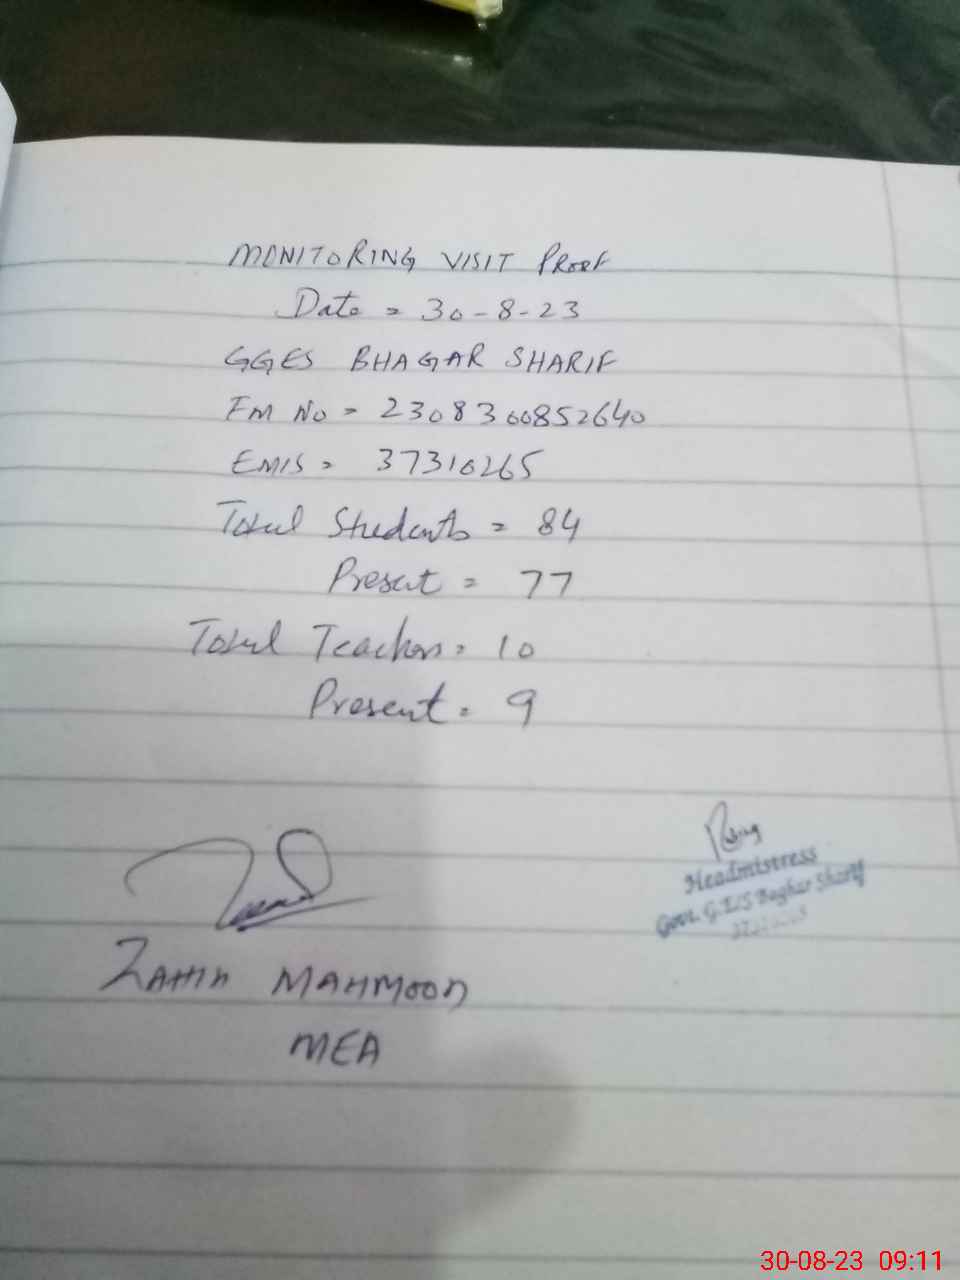 MONITORING VISIT PROOF
Date = 30-8-23
GGES BHAGAR SHARIF
FM No = 2308300852640
EMIS = 37310265
Total Students = 84
Present = 77
Total Teachers = 10
Present = 9
ZAHID MAHMOOD
MEA
Headmistress
Govt. G.E/S Baghar Sharif
30-08-23 09:11